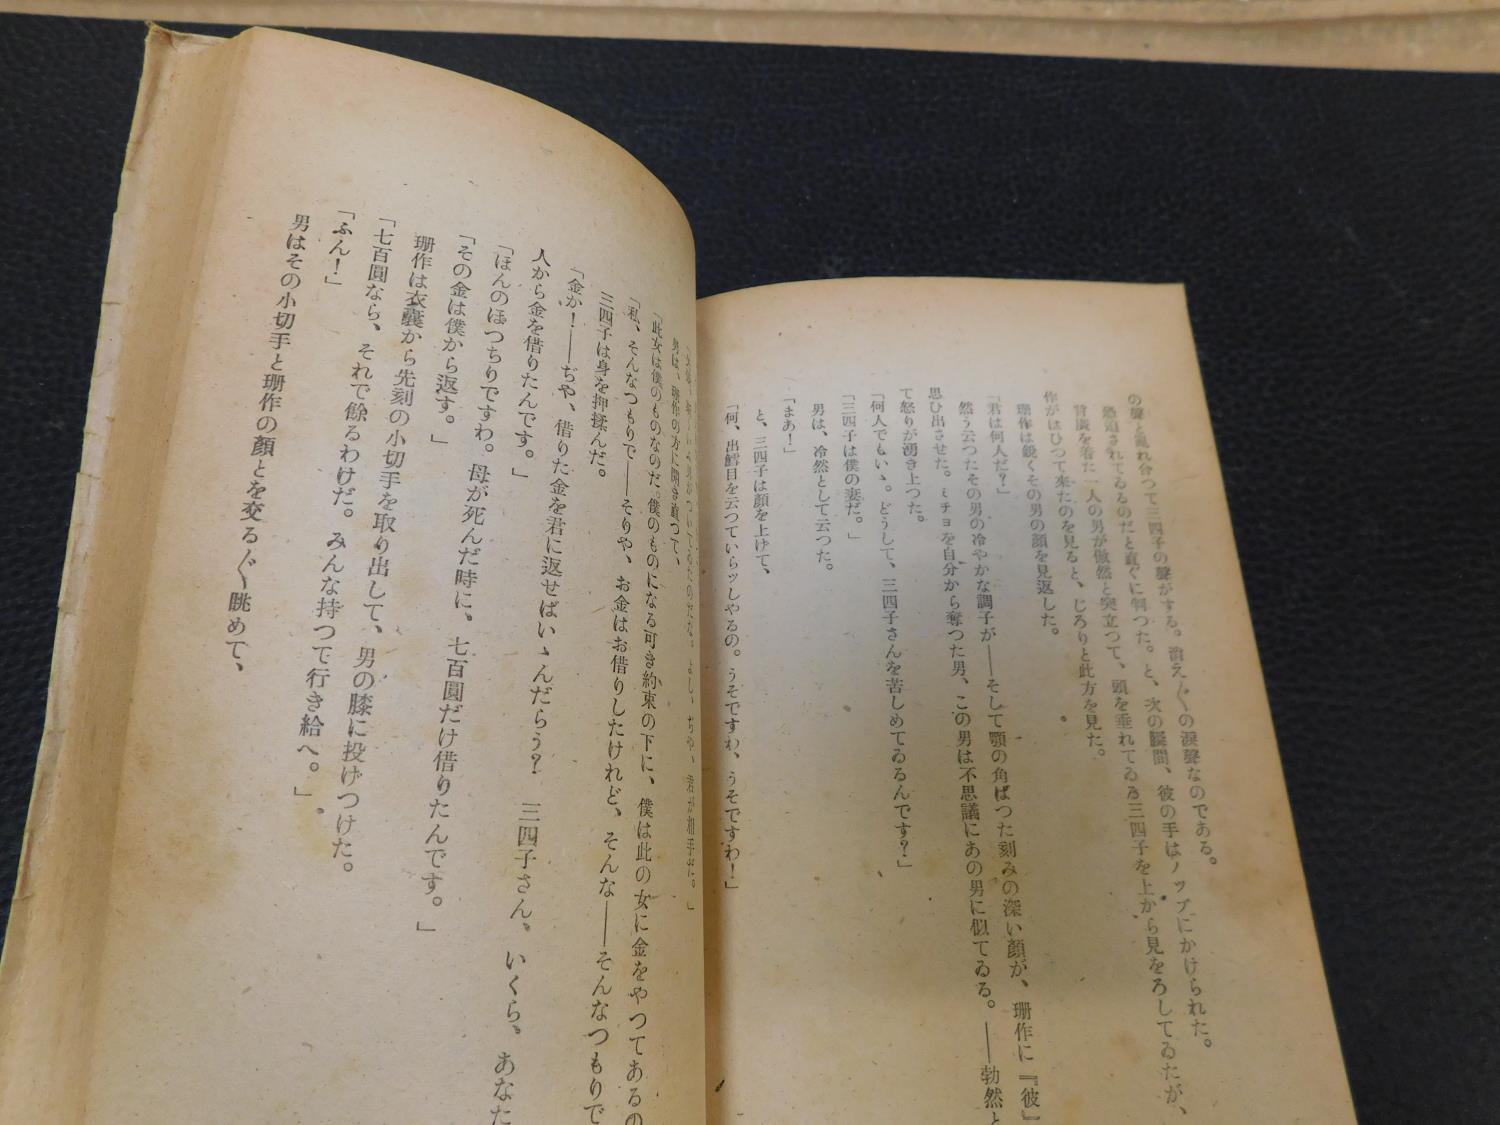 の聲と亂れ合つて三四子の聲がする。消え〴〵の涙聲なのである。
脅迫されてゐるのだと直ぐに判つた。と、次の瞬間、彼の手はノッブにかけられた。
背廣を着た一人の男が傲然と突立つて、頭を垂れてゐる三四子を上から見をろしてゐたが、
作がはひつて來たのを見ると、じろりと此方を見た。
珊作は鋭くその男の顏を見返した。
「君は何人だ?」
然う云つたその男の冷やかな調子が——そして顎の角ばつた刻みの深い顏が、珊作に『彼』
思ひ出させた。ミチヨを自分から奪つた男、この男は不思議にあの男に似てゐる。——勃然と
て怒りが湧き上つた。
「何人でもいゝ。どうして、三四子さんを苦しめてゐるんです?」
「三四子は僕の妻だ。」
男は、冷然として云つた。
「まあ!」
と、三四子は顏を上げて、
「何、出鱈目を云つていらッしやるの。うそですわ、うそですわ!」
ついてゐたのだな。よし、ぢや、君が相手だ。」
男は、珊作の方に開き直つて、
「此女は僕のものなのだ。僕のものになる可き約束の下に、僕は此の女に金をやつてあるの
「私、そんなつもりで——そりや、お金はお借りしたけれど、そんな——そんなつもりで
三四子は身を押揉んだ。
「金か!——ぢや、借りた金を君に返せばいゝんだらう? 三四子さん、いくら、あなた
人から金を借りたんです。」
「ほんのぽつちりですわ。母が死んだ時に、七百圓だけ借りたんです。」
「その金は僕から返す。」
珊作は衣嚢から先刻の小切手を取り出して、男の膝に投げつけた。
「七百圓なら、それで餘るわけだ。みんな持つて行き給へ。」
「ふん!」
男はその小切手と珊作の顏とを交る〴〵眺めて、